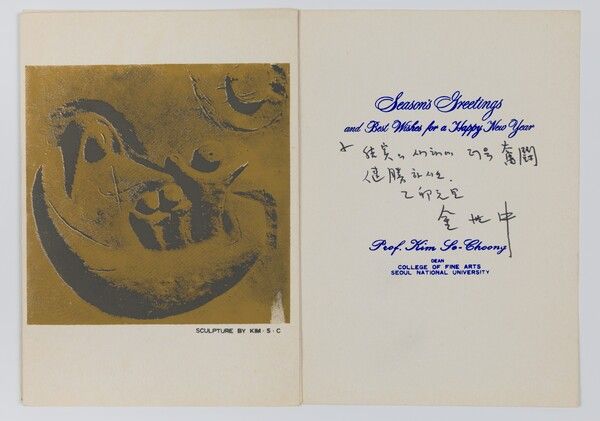 SCULPTURE BY KIM · S · C
Season's Greetings
and Best Wishes for a Happy New Year
結實의 새해에 더욱 奮鬪
健勝 하시오.
乙卯元旦
金世中
Prof. Kim Se-Choong
DEAN
COLLEGE OF FINE ARTS
SEOUL NATIONAL UNIVERSITY